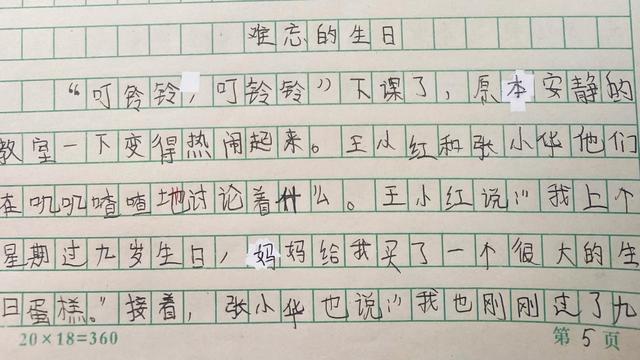 难忘的生日
“叮铃铃，叮铃铃”下课了，原本安静的
教室一下变得热闹起来。王小红和张小华他们
在叽叽喳喳地讨论着什么。王小红说：“我上个
星期过九岁生日，妈妈给我买了一个很大的生
日蛋糕。”接着，张小华也说：“我也刚刚过了九
20×18=360 第5页